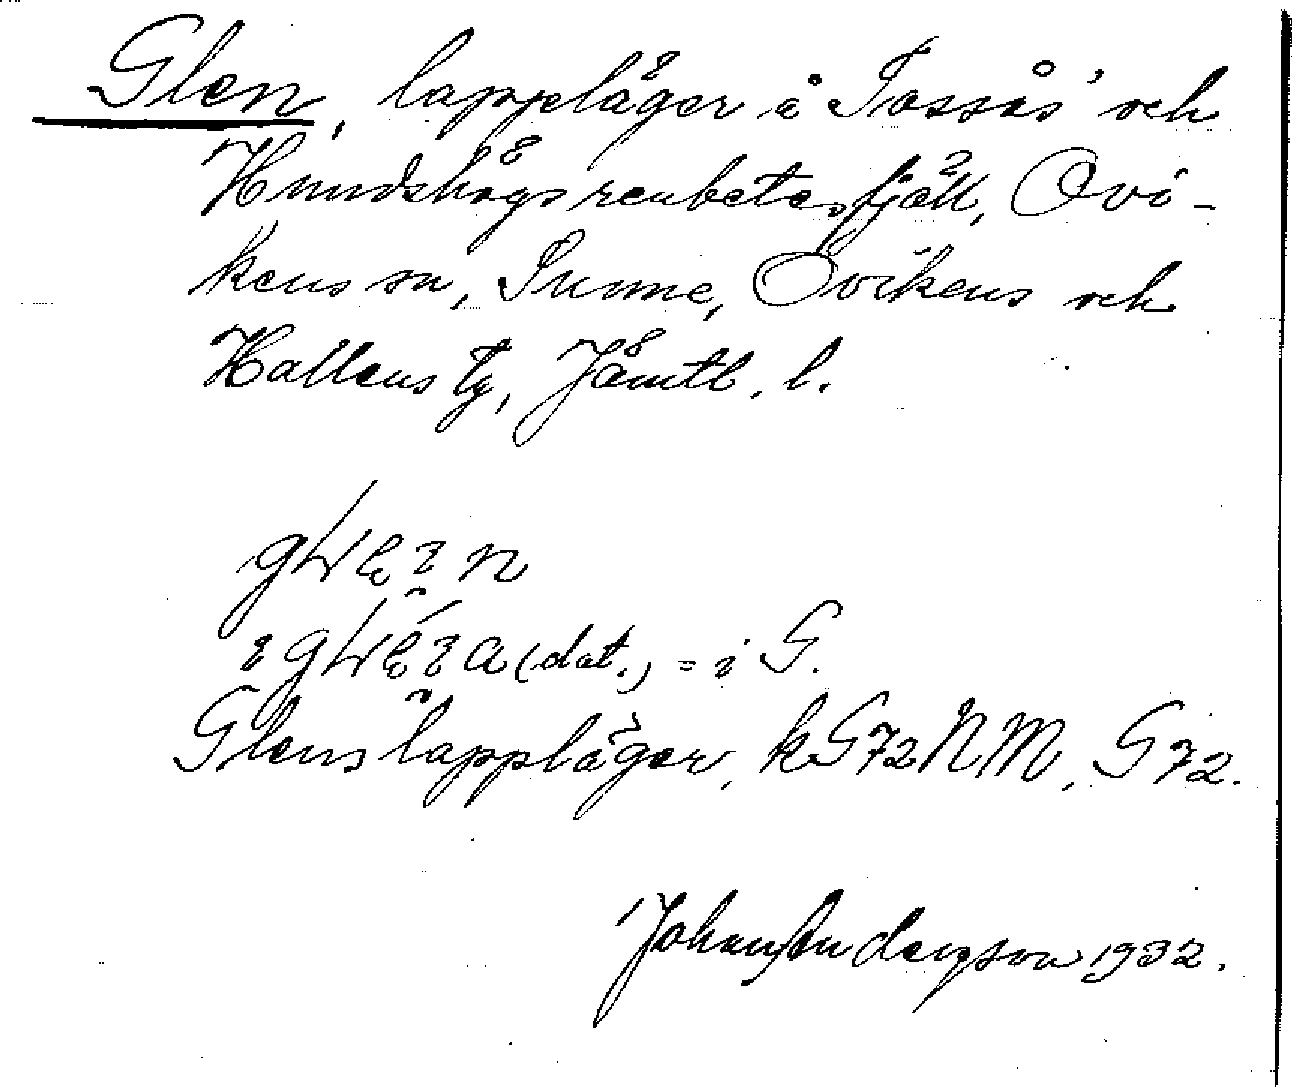 Glen, lappläger i Tossås' och
Hundshögs renbetesfjäll, Ovi-
kens sn, Sunne, Ovikens och
Hallens tg, Jämtl. l.
(dat.) = i G.
Glens lappläger, kG72NM, G72.
Johan Andersson 1932.